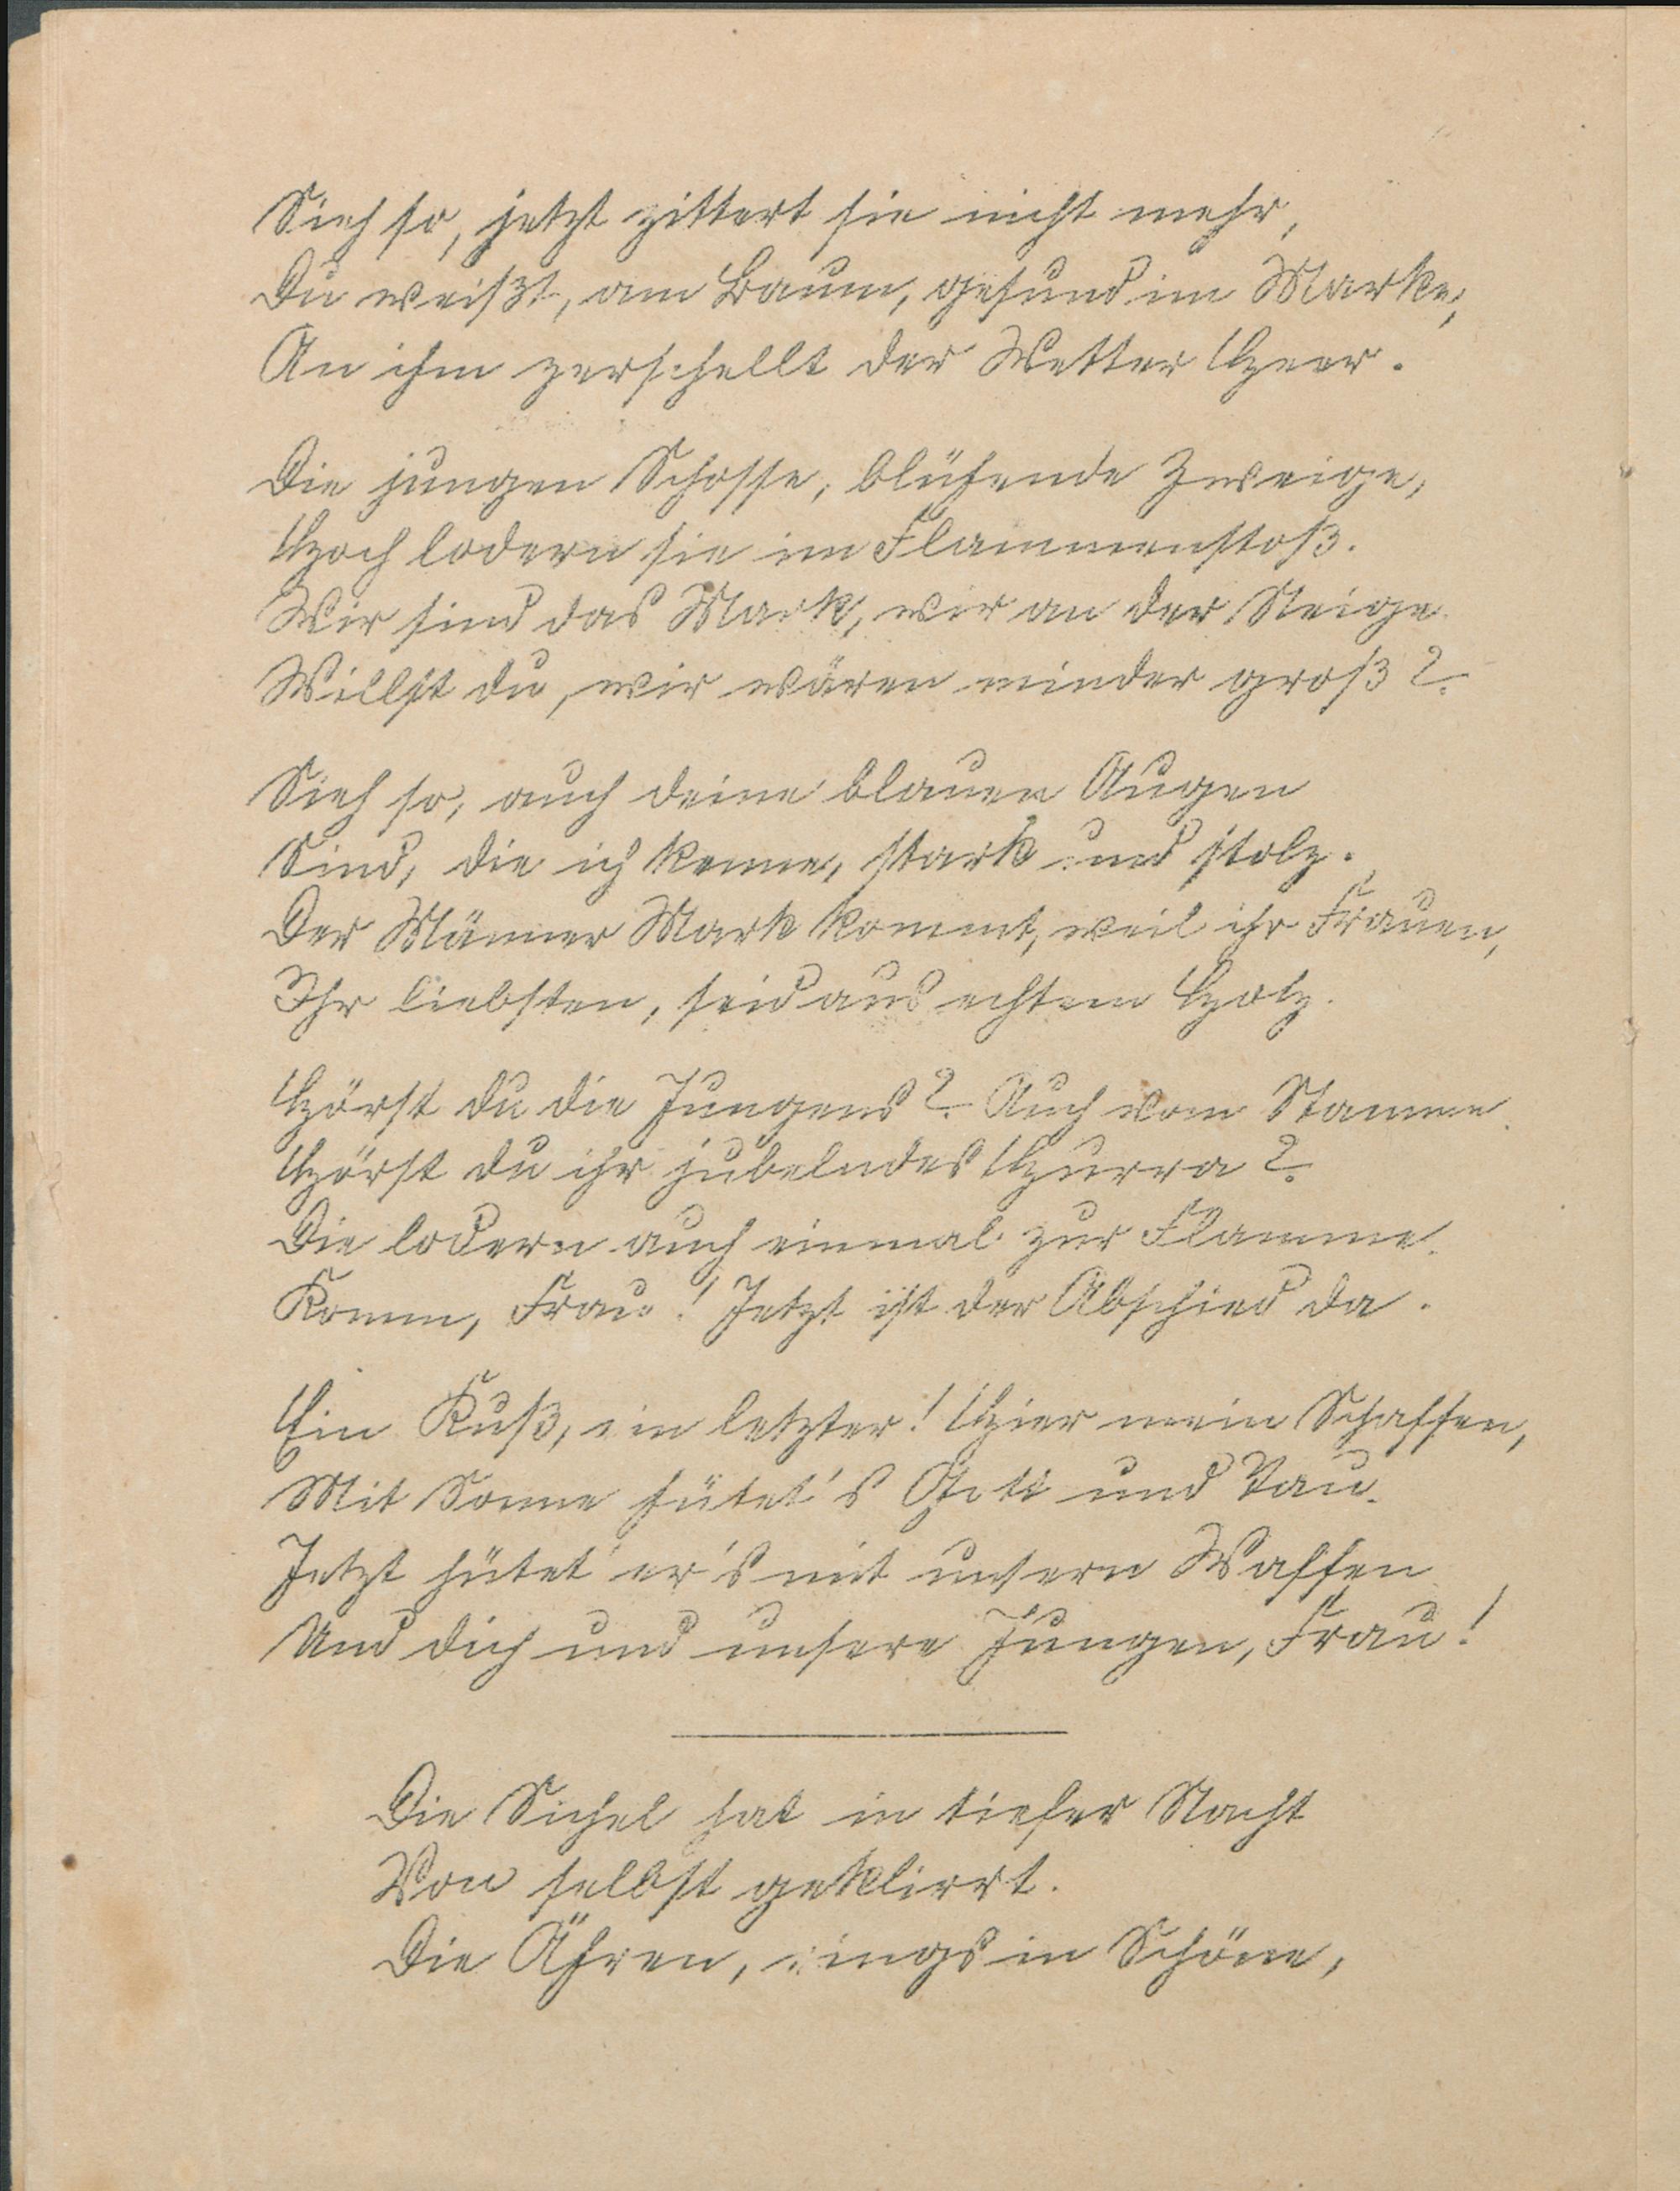 Sieh so, jetzt zittert sie nicht mehr,
Du weißt, am Baum, gesund im Marke,
An ihm zerschellt der Wetter Heer.
Die jungen Schosse, blühende Zweige,
Hoch lodern sie im Flammenstoß.
Wir sind das Mark, wir an der Neige
Willst du, wir wären minder groß?
Sieh so, auch deine blauen Augen
Sind, die ich kenne, stark und stolz.
Der Männer Mark kommt, weil ihr Frauen,
Ihr liebsten, seid aus echtem Holz.
Hörst du die Jungens? Auch vom Stamme
Hörst du ihr jubelndes Hurra?
Die lodern auch einmal zur Flamme.
Komm, Frau! Jetzt ist der Abschied da.
Ein Kuß, ein letzter! Hier mein Schaffen,
Mit Sonne hütet's Gott und Tau.
Jetzt hütet er's mit unsern Waffen
Und dich und unsere Jungen, Frau!
Die Sichel hat in tiefer Nacht
Von selbst geklirrt.
Die Ähren, rings in Schöne,